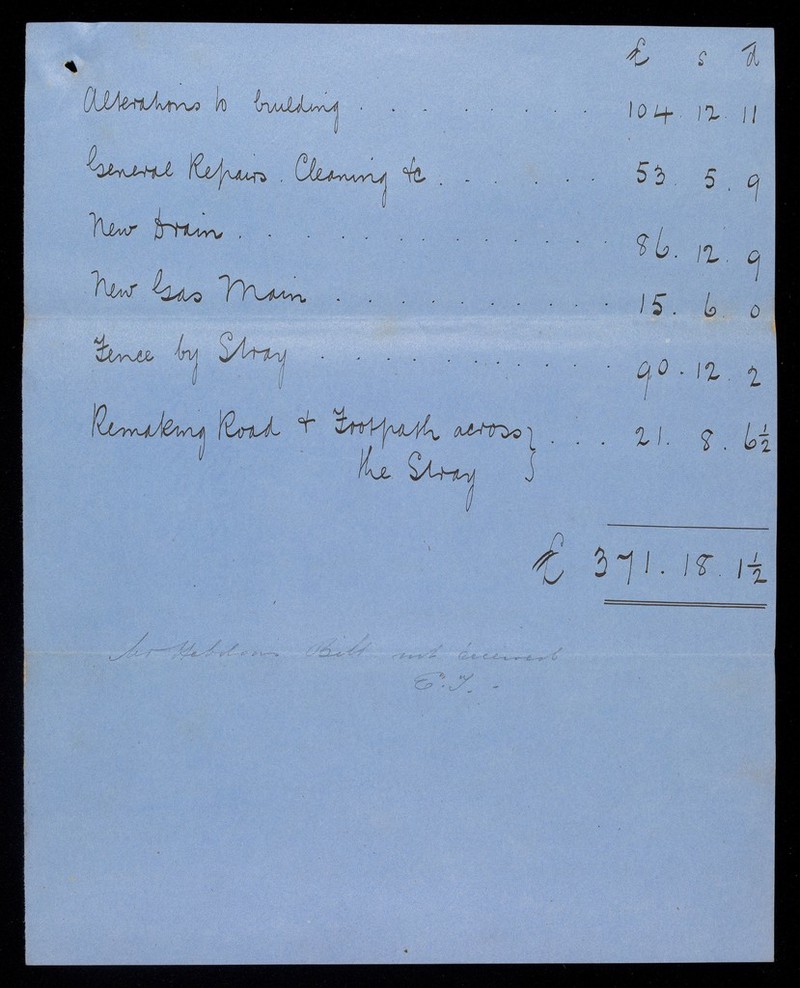 £ s d
Alterations to building . . . . . . . . . 104 . 12 . 11
General Repairs . Cleaning &c . . . . . . . 53 . 5 . 9
New Drain . . . . . . . . . . . . . 86 . 12 . 9
New Gas Main . . . . . . . . . . . 15 . 6 . 0
Fence by Stray . . . . . . . . . . . . 90 . 12 . 2
Remaking Road & Footpath across } . . . 21 . 8 . 6½
the Stray
£ 371 . 18 . 1½
Bill not